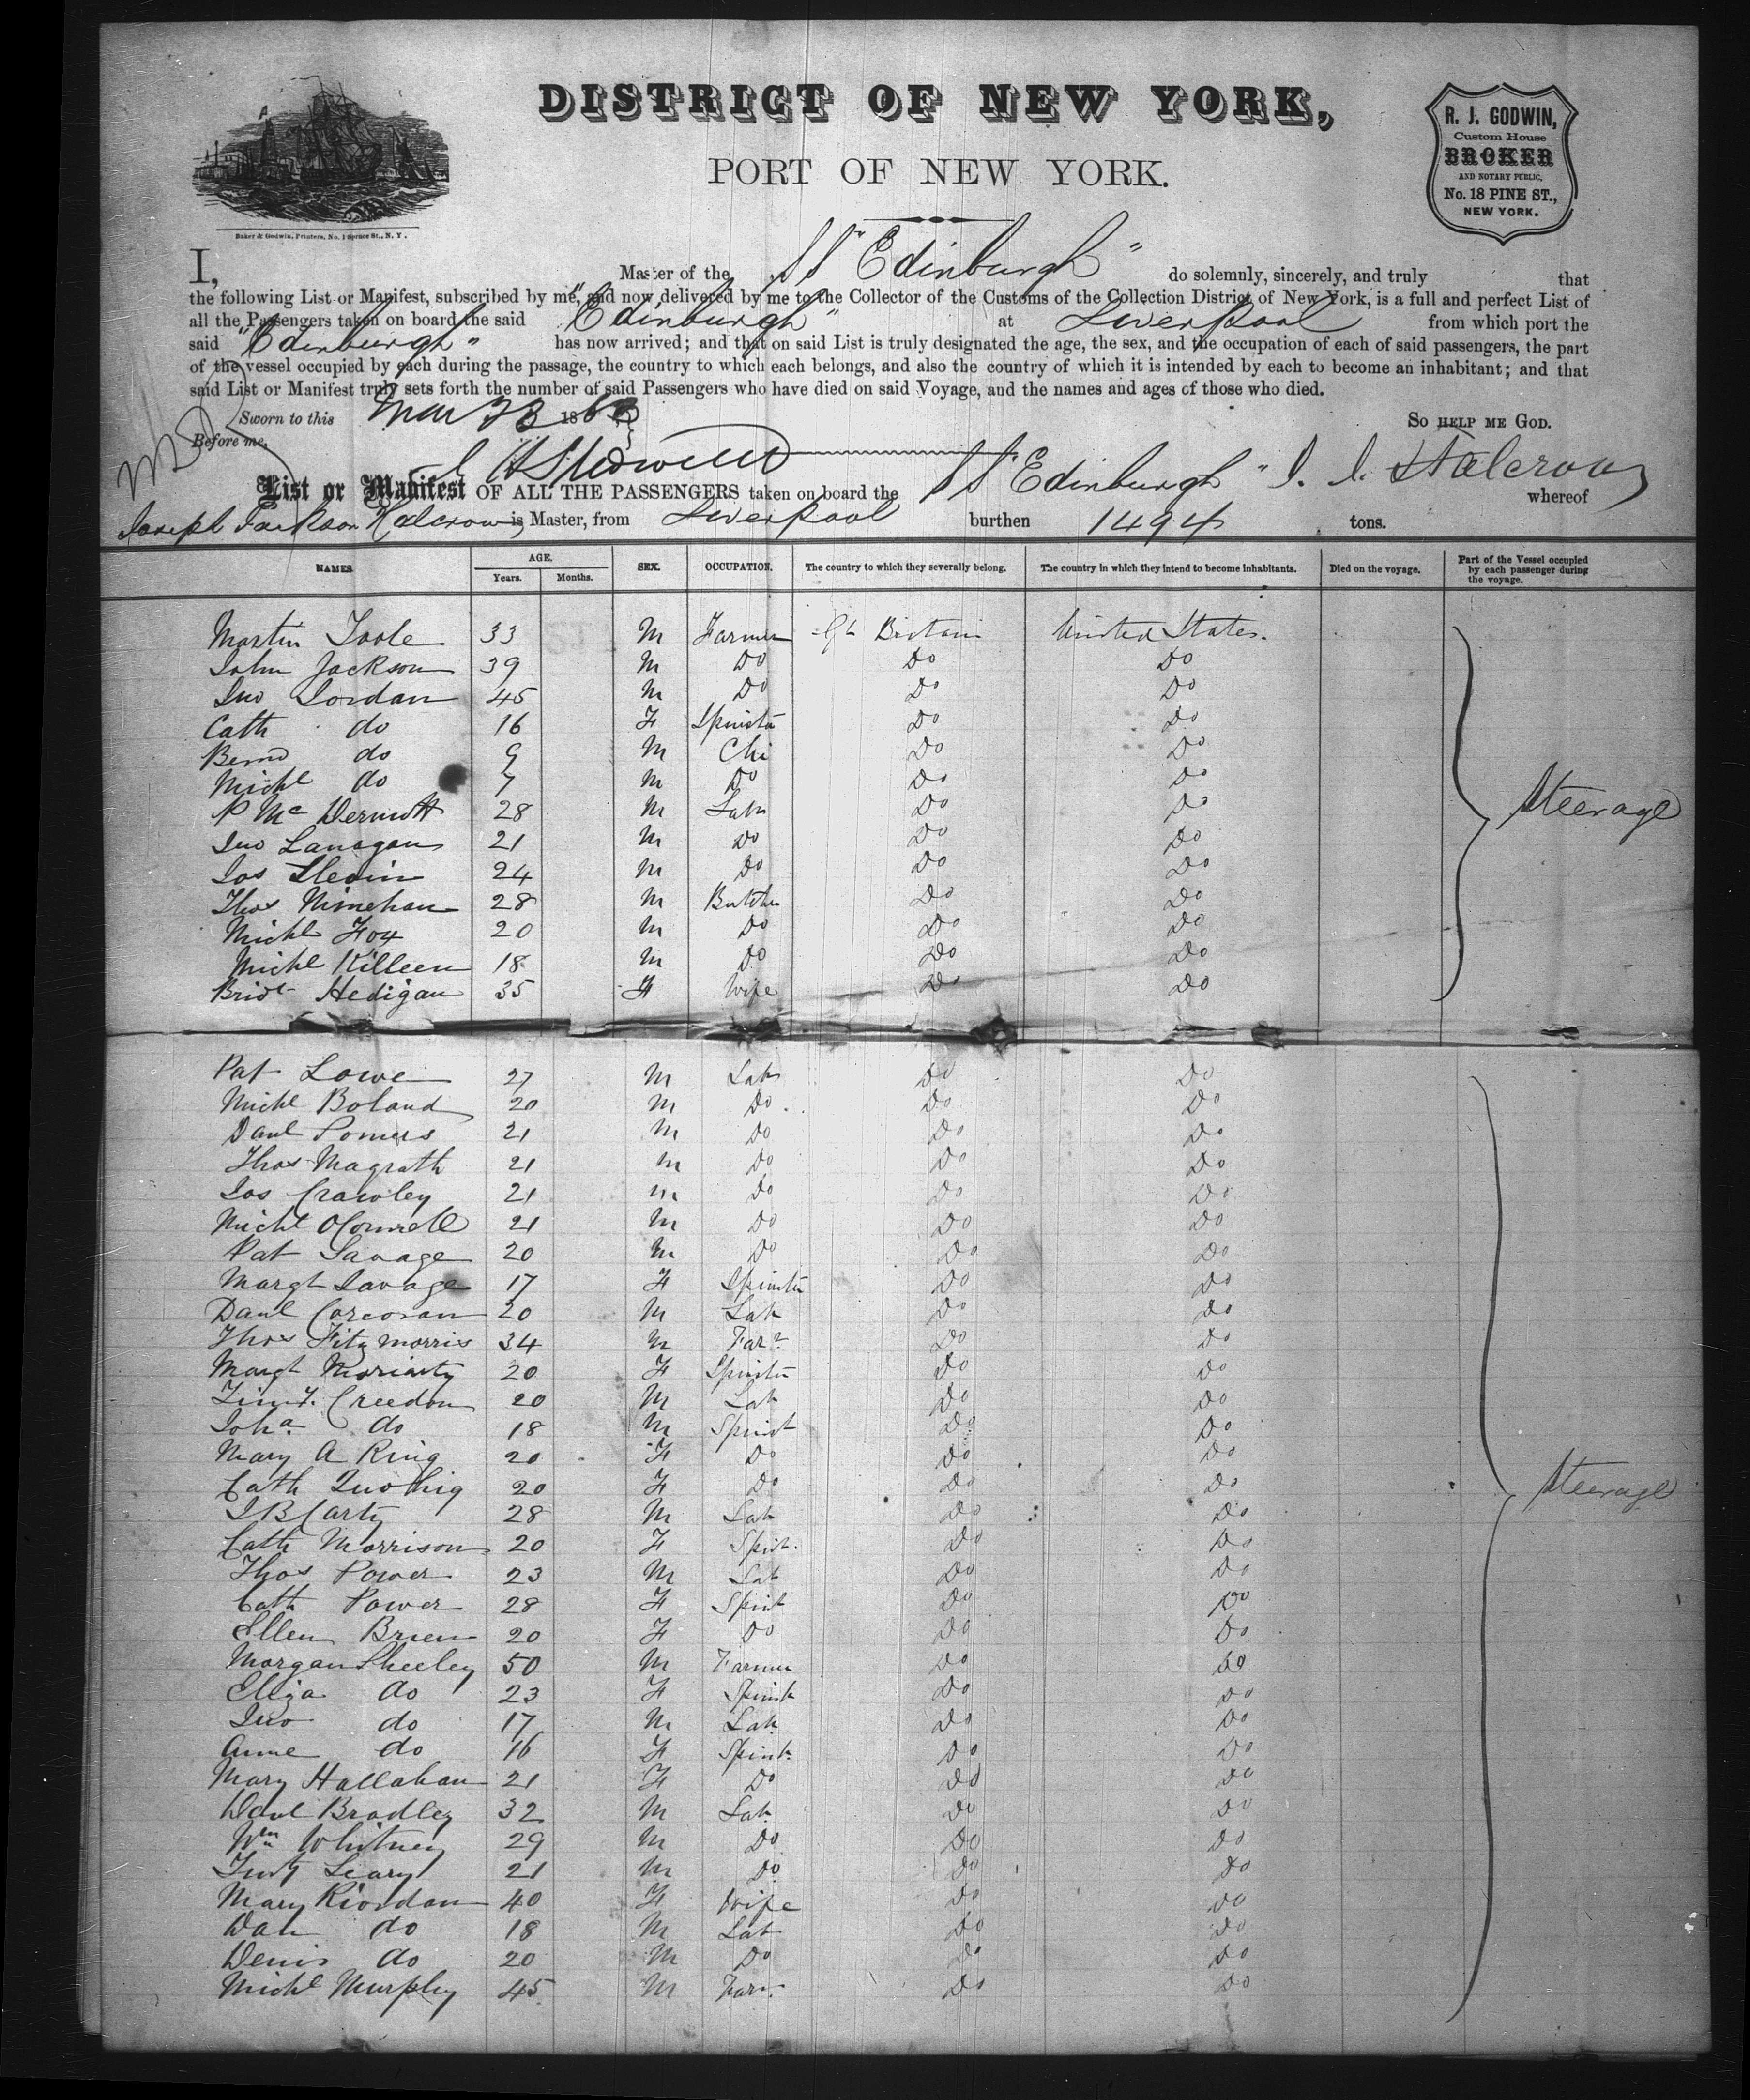 DISTRICT OF NEW YORK,
PORT OF NEW YORK.
R. J. GODWIN,
Custom House
BROKER
AND NOTARY PUBLIC,
No. 18 PINE ST.,
NEW YORK.
Baker & Godwin, Printers, No. 1 Spruce St., N. Y.
I, Master of the SS "Edinburgh" do solemnly, sincerely, and truly that
the following List or Manifest, subscribed by me, and now delivered by me to the Collector of the Customs of the Collection District of New York, is a full and perfect List of
all the Passengers taken on board the said "Edinburgh" at Liverpool from which port the
said "Edinburgh" has now arrived; and that on said List is truly designated the age, the sex, and the occupation of each of said passengers, the part
of the vessel occupied by each during the passage, the country to which each belongs, and also the country of which it is intended by each to become an inhabitant; and that
said List or Manifest truly sets forth the number of said Passengers who have died on said Voyage, and the names and ages of those who died.
Sworn to this Mar 23 186 SO HELP ME GOD.
Before me,
List or Manifest OF ALL THE PASSENGERS taken on board the SS "Edinburgh" J. J. Halcrow whereof
Joseph Jackson Halcrow is Master, from Liverpool burthen 1494 tons.
NAMES. AGE. Years. Months. SEX. OCCUPATION. The country to which they severally belong. The country in which they intend to become inhabitants. Died on the voyage. Part of the Vessel occupied by each passenger during the voyage.
Martin Toole 33 M Farmer Gt Britain United States.
John Jackson 39 M Do Do Do
Jno Jordan 45 M Do Do Do
Cath do 16 F Spinstr Do Do
Bernd do 9 M Chi Do Do
Michl do 7 M Do Do Do
P McDermott 28 M Labr Do Do Steerage
Jno Lanagan 21 M Do Do Do
Jos Slevin 24 M Do Do Do
Thos Minehan 28 M Butcher Do Do
Michl Fox 20 M Do Do Do
Michl Killeen 18 M Do Do Do
Bridt Hedigan 35 F Wife Do Do
Pat Lowe 27 M Lab Do Do
Michl Boland 20 M Do Do Do
Danl Somers 21 M Do Do Do
Thos Magrath 21 M Do Do Do
Jos Crawley 21 M Do Do Do
Michl OConnell 21 M Do Do Do
Pat Savage 20 M Do Do Do
Margt Savage 17 F Spinstr Do Do
Danl Corcoran 20 M Lab Do Do
Thos Fitzmorris 34 M Farr Do Do
Margt Moriarty 20 F Spinstr Do Do
Timy. Creedon 20 M Lab Do Do
Joha do 18 M Spinst Do Do
Mary A Ring 20 F Do Do Do
Cath Twohig 20 F Do Do Do Steerage
J B Carty 28 M Lab Do Do
Cath Morrison 20 F Spist. Do Do
Thos Power 23 M Lab Do Do
Cath Power 28 F Spint Do Do
Ellen Brien 20 F Do Do Do
Morgan Sheeley 50 M Farmer Do Do
Eliza do 23 F Spinst Do Do
Jno do 17 M Lab. Do Do
Anne do 16 F Spinst. Do Do
Mary Hallahan 21 F Do Do Do
Danl Bradley 32 M Lab. Do Do
Wm Whitney 29 M Do Do Do
Timty Leary 21 M Do Do Do
Mary Riordan 40 F Wife Do Do
Dan do 18 M Lab Do Do
Denis do 20 M Do Do Do
Michl Murphy 45 M Farr. Do Do